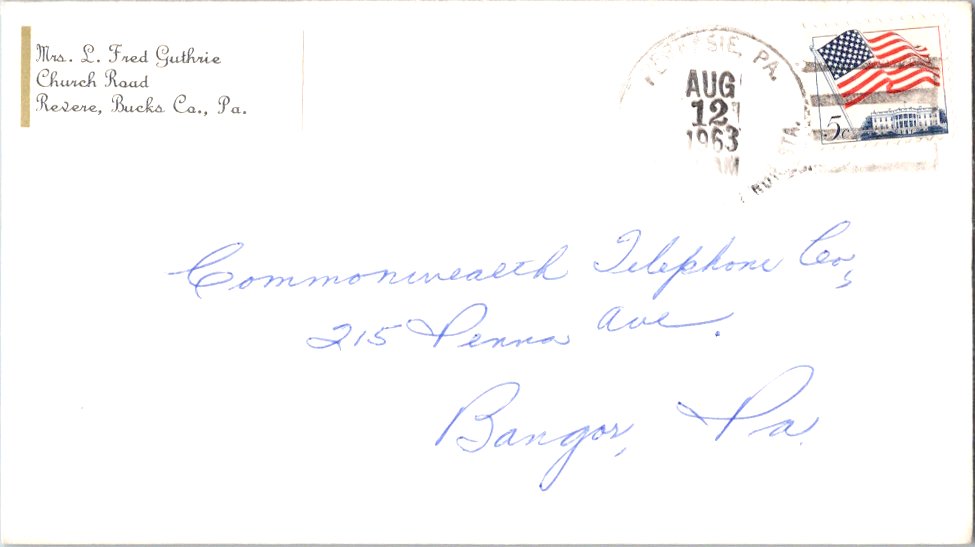 Mrs. L. Fred Guthrie
Church Road
Revere, Bucks Co., Pa.
PERKASIE, PA.
AUG
12
1963
AM
RUR. STA.
5c
Commonwealth Telephone Co,
215 Penna Ave.
Bangor, Pa.